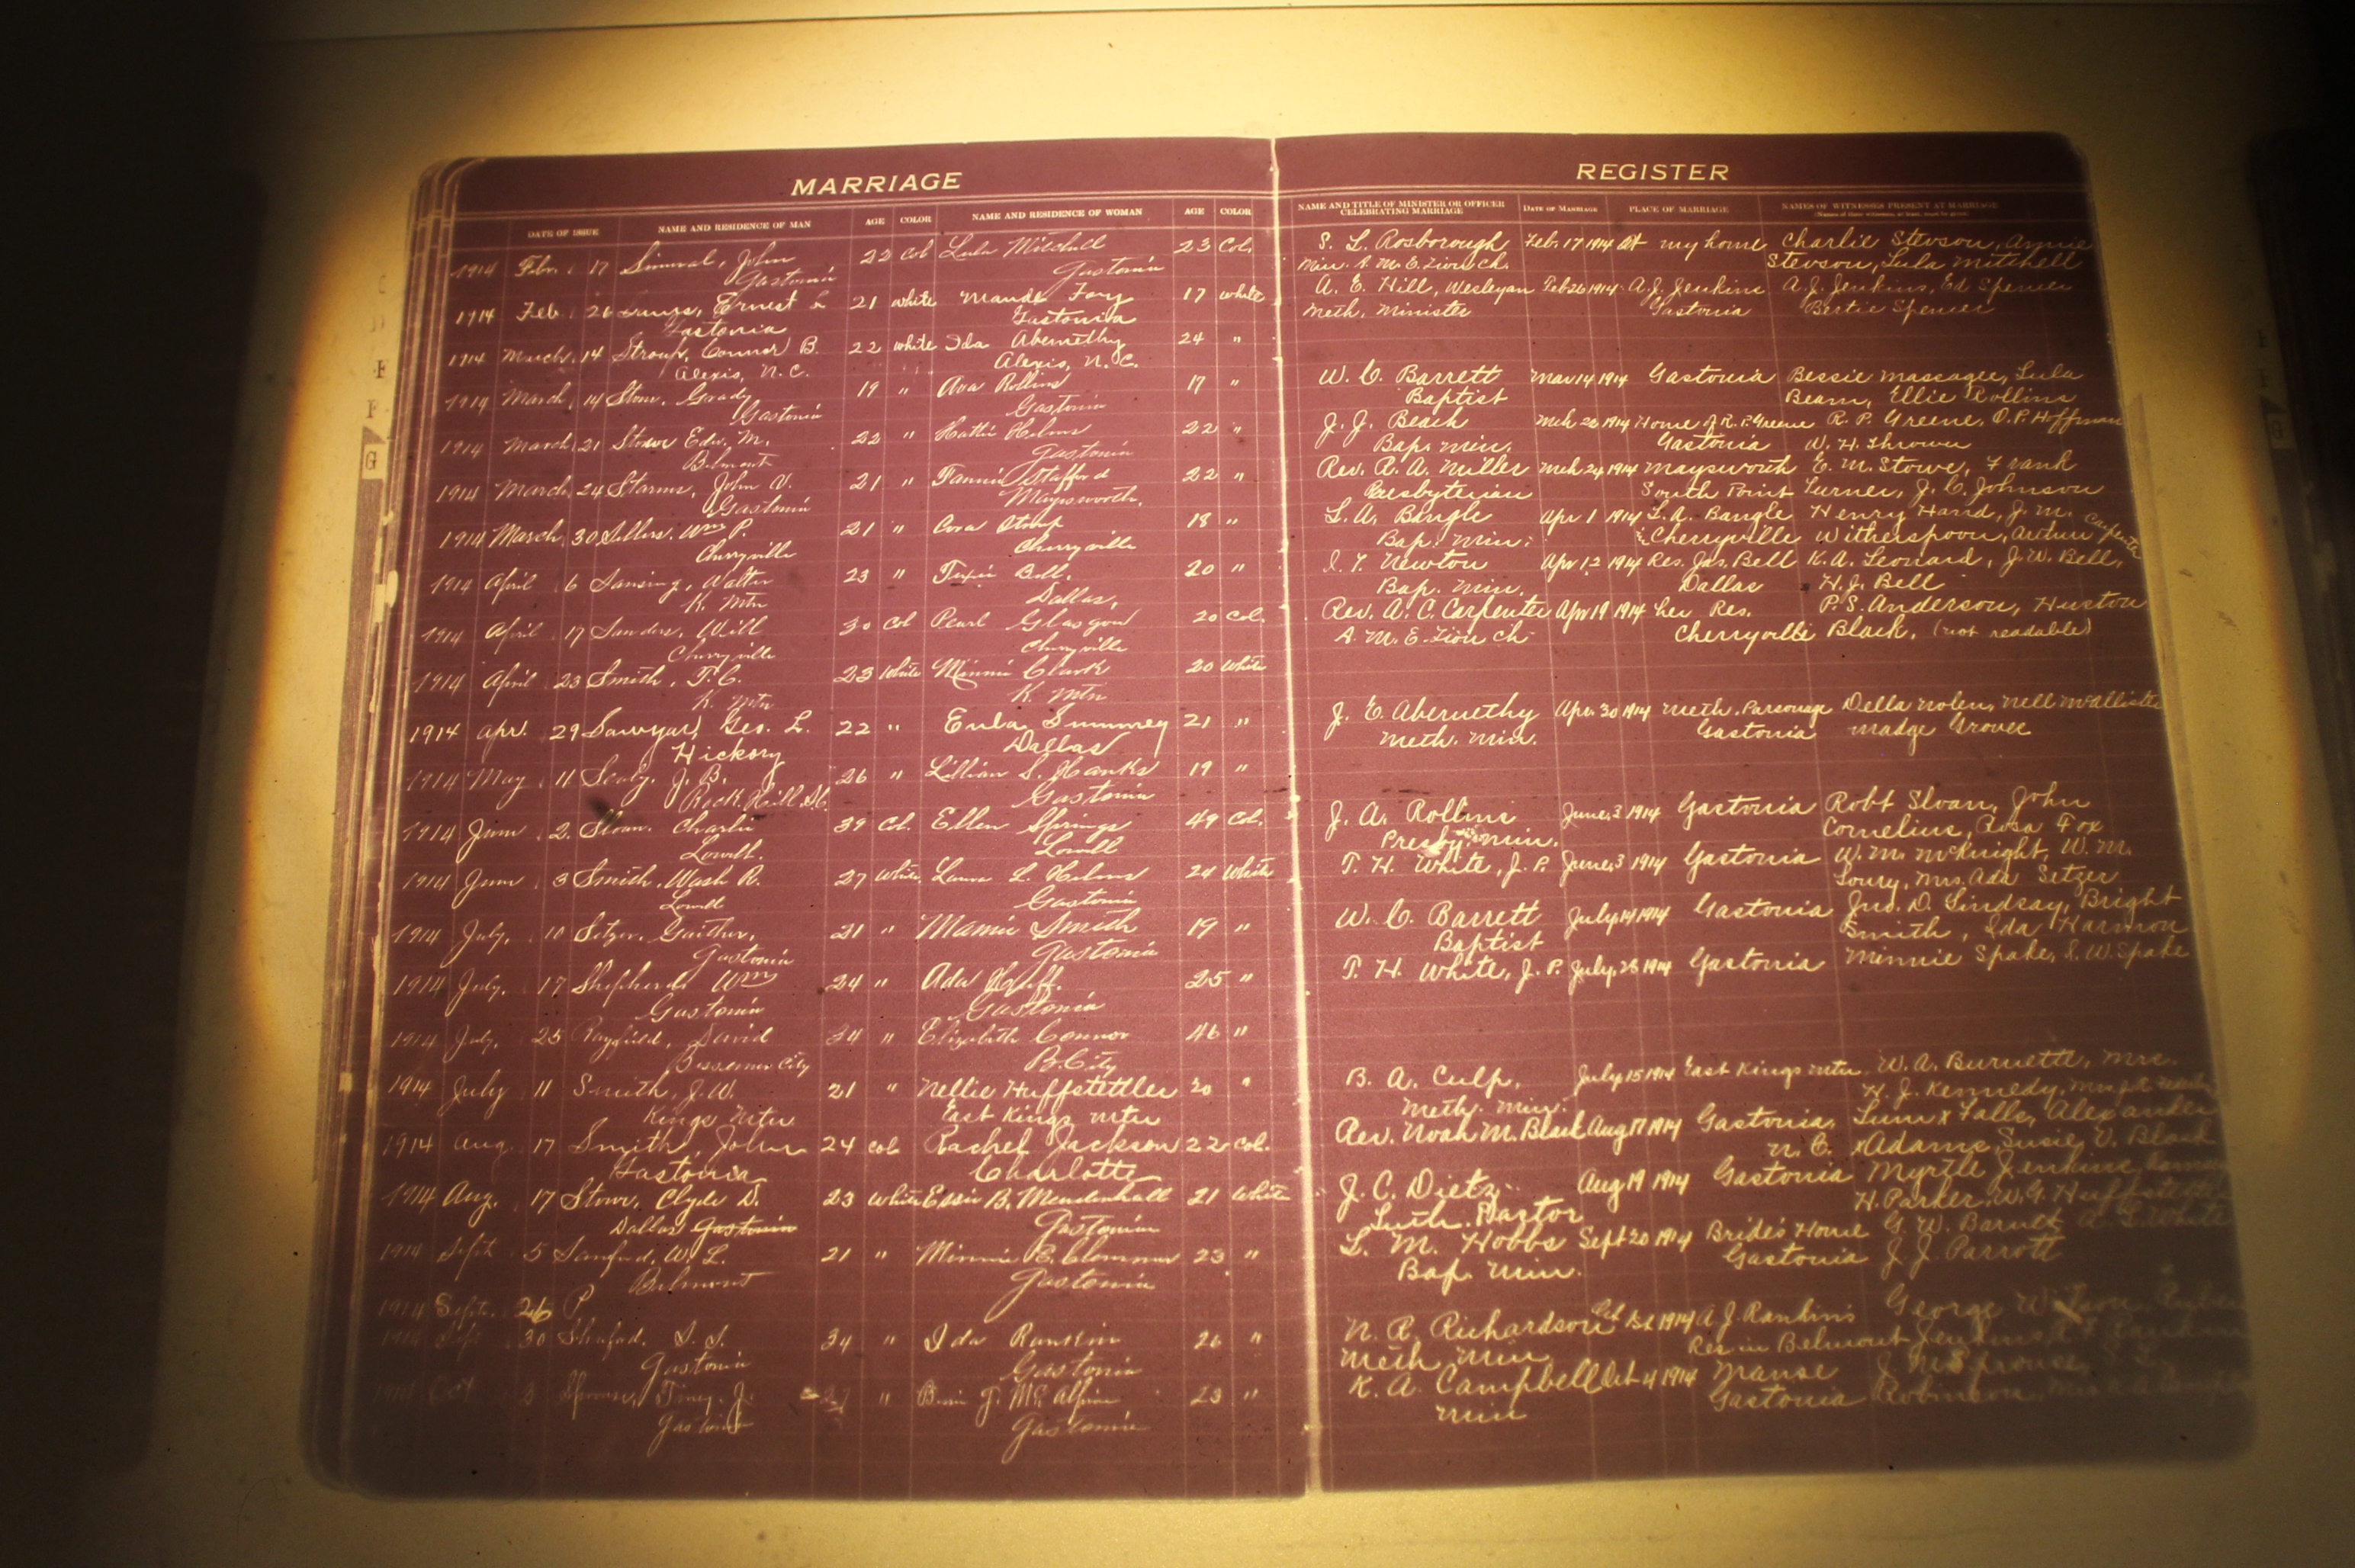 MARRIAGE
DATE OF ISSUE NAME AND RESIDENCE OF MAN AGE COLOR NAME AND RESIDENCE OF WOMAN AGE COLOR
1914 Feb. 17 John 22 Col Lula Mitchell 23 Col.
Gastonia Gastonia
1914 Feb. 26 Ernest L 21 white Maude Foy 17 white
Gastonia Gastonia
1914 March 14 Stroup, Connor B. 22 white Ida Abernethy 24 "
Alexis, N.C. Alexis, N.C.
1914 March 14 Stone, Grady 19 " Ava Rollins 17 "
Gastonia Gastonia
1914 March 21 Stowe Edw. M. 22 " Hattie Helms 22 "
Belmont Gastonia
1914 March 24 Starnes, John V. 21 " Fannie Stafford 22 "
Gastonia Maysworth.
1914 March 30 Sellers, Wm P. 21 " Cora 18 "
Cherryville Cherryville
1914 April 6 Walter 23 " Bell. 20 "
K. Mtn Dallas,
1914 April 17 Sanders, Will 30 Col Pearl Glasgow 20 Col.
Cherryville Cherryville
1914 April 23 Smith, T.C. 23 White Minnie Clark 20 White
K. Mtn K. Mtn
1914 Apr. 29 Sawyar, Geo. L. 22 " Eula Summey 21 "
Hickory Dallas
1914 May 11 Sealy, J. B. 26 " Lillian S. Hanks 19 "
Rock Hill S.C. Gastonia
1914 June 2 Sloan, Charlie 39 Col. Ellen Springs 49 Col.
Lowell. Lowell
1914 June 3 Smith, Wash R. 27 White Laura L. Helms 24 White
Lowell Gastonia
1914 July. 10 Setzer, Gaither, 21 " Mamie Smith 19 "
Gastonia Gastonia
1914 July. 17 Shepherd Wm 24 " Ada Huff. 25 "
Gastonia Gastonia
1914 July. 25 Rayfield, David 54 " Elizabeth Connor 46 "
Bessemer City B. City
1914 July 11 Smith, J.W. 21 " Nellie Huffstettler 20 "
Kings Mtn East Kings Mtn
1914 Aug. 17 Smith, John 24 col Rachel Jackson 22 col.
Gastonia Charlotte
1914 Aug. 17 Stowe, Clyde D. 23 White Essie B. Mendenhall 21 White
Dallas Gastonia Gastonia
1914 Sept. 5 Sanford, W. L. 21 " Minnie E. Clemmer 23 "
Belmont Gastonia
1914 Sept. 26 P
1914 Sept 30 Shuford, S. S. 34 " Ida Rankin 26 "
Gastonia Gastonia
1914 Oct 3 " J. McAlpine 23 "
Gastonia Gastonia
REGISTER
NAME AND TITLE OF MINISTER OR OFFICER CELEBRATING MARRIAGE DATE OF MARRIAGE PLACE OF MARRIAGE NAMES OF WITNESSES PRESENT AT MARRIAGE
S. L. Rosborough Feb. 17 1914 At my home Charlie Stevson, Annie
Min. A. M. E. Zion Ch. Stevson, Lula Mitchell
A. E. Hill, Wesleyan Feb 26 1914 A.J. Jenkins A.J. Jenkins, Ed Spencer
Meth. Minister Gastonia Bertie Spencer
W. C. Barrett Mar 14 1914 Gastonia Bessie Massagee, Lula
Baptist Beam, Ellie Rollins
J. J. Beach Mch 22 1914 Home of R. P. Greene R. P. Greene, O. P. Hoffman
Bap. Min. Gastonia W. H. Thrower
Rev. R. A. Miller Mch 24 1914 Maysworth E. M. Stowe, Frank
Presbyterian South Point Turner, J. C. Johnson
L. A. Bangle Apr 1 1914 L. A. Bangle Henry Hand, J. M. Carpenter
Bap. Min. Cherryville Witherspoon, Arthur
I. T. Newton Apr 12 1914 Res. Jas. Bell K. A. Leonard, J. W. Bell,
Bap. Min. Dallas H. J. Bell
Rev. A. C. Carpenter Apr 19 1914 her Res. P. S. Anderson, Huston
A. M. E. Zion Ch. Cherryville Black, (not readable)
J. E. Abernethy Apr. 30 1914 Meth. Parsonage Della Nolen, Nell McAllister
Meth. Min. Gastonia Madge Grover
J. A. Rollins June. 3 1914 Gastonia Robt Sloan, John
Presby. min. Cornelius, Rosa Fox
T. H. White, J. P. June. 3 1914 Gastonia W. M. McKnight, W. M.
Loury, Mrs. Ada Setzer
W. C. Barrett July 14 1914 Gastonia Jno. D. Lindsay, Bright
Baptist Smith, Ida Harmon
T. H. White, J. P. July. 28 1914 Gastonia Minnie Spake, S. W. Spake
B. A. Culp, July 15 1914 East Kings Mtn. W. A. Burnette, Mrs.
Meth. Min. H. J. Kennedy, Mrs.
Rev. Noah M. Black Aug 17 1914 Gastonia, Lum x Falls, Alexander
N. C. x Adams, Susie V. Black
J. C. Dietz Aug 19 1914 Gastonia Myrtle Jenkins,
Luth. Pastor H. Parker, W. G. Huffstetler
L. M. Hobbs Sept 20 1914 Bride's Home G. W. Barnett A. L. White
Bap. Min. Gastonia J. J. Parrott
N. R. Richardson Oct 1st 1914 A J. Rankins George Wilson,
Meth Min Res in Belmont
K. A. Campbell Oct 4 1914 Manse J. M. Sprouse,
Min Gastonia Robinson, Mrs K. A. Campbell
G